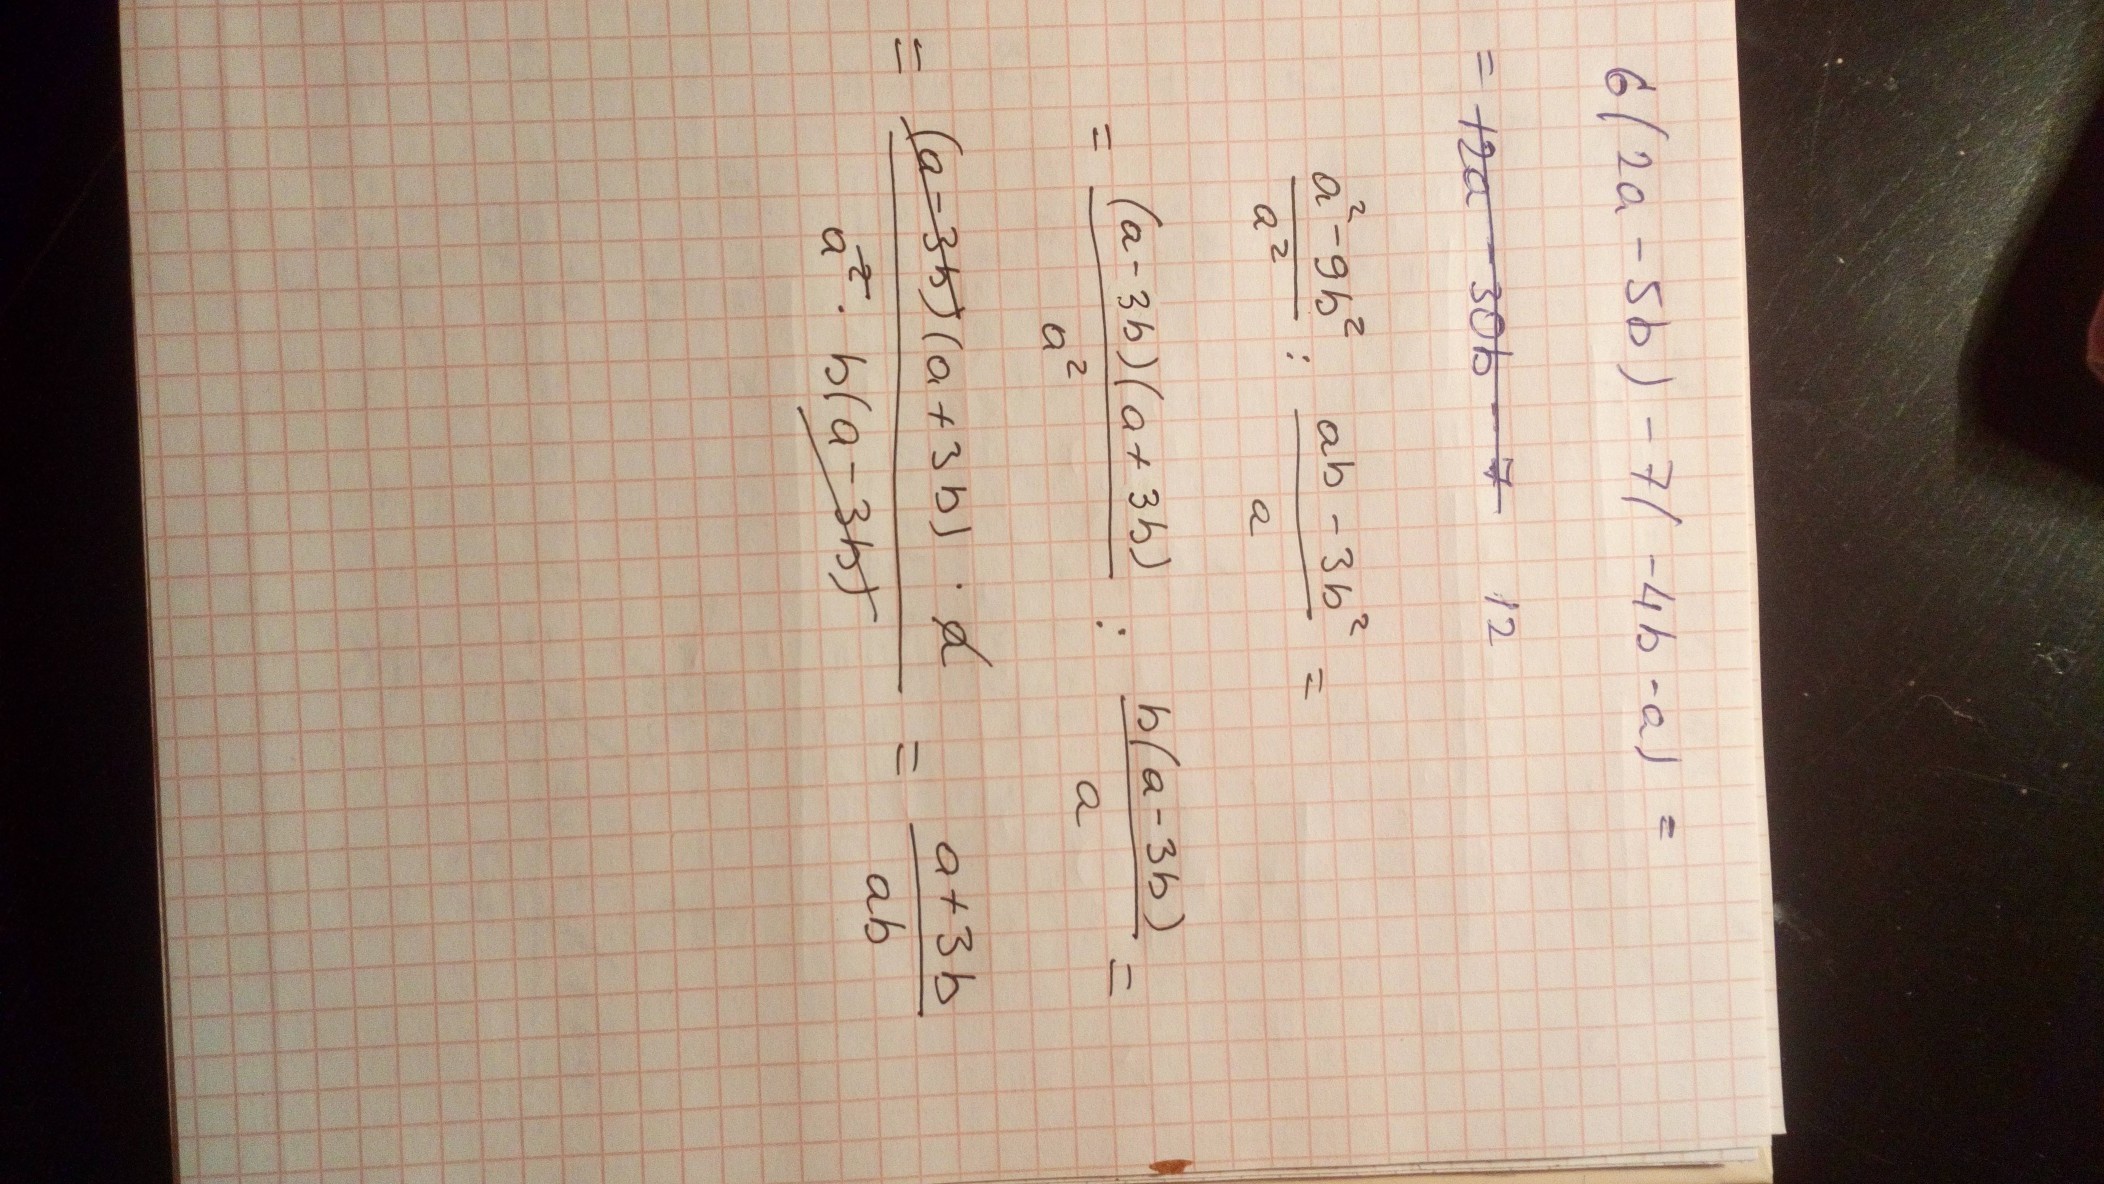 6(2a - 5b) - 7(-4b - a) =
= 12a - 30b - 7 12
a²-9b²/a² : ab - 3b²/a =
= (a-3b)(a+3b)/a² : b(a-3b)/a =
= (a-3b)(a+3b)·a/a²·b(a-3b) = a+3b/ab